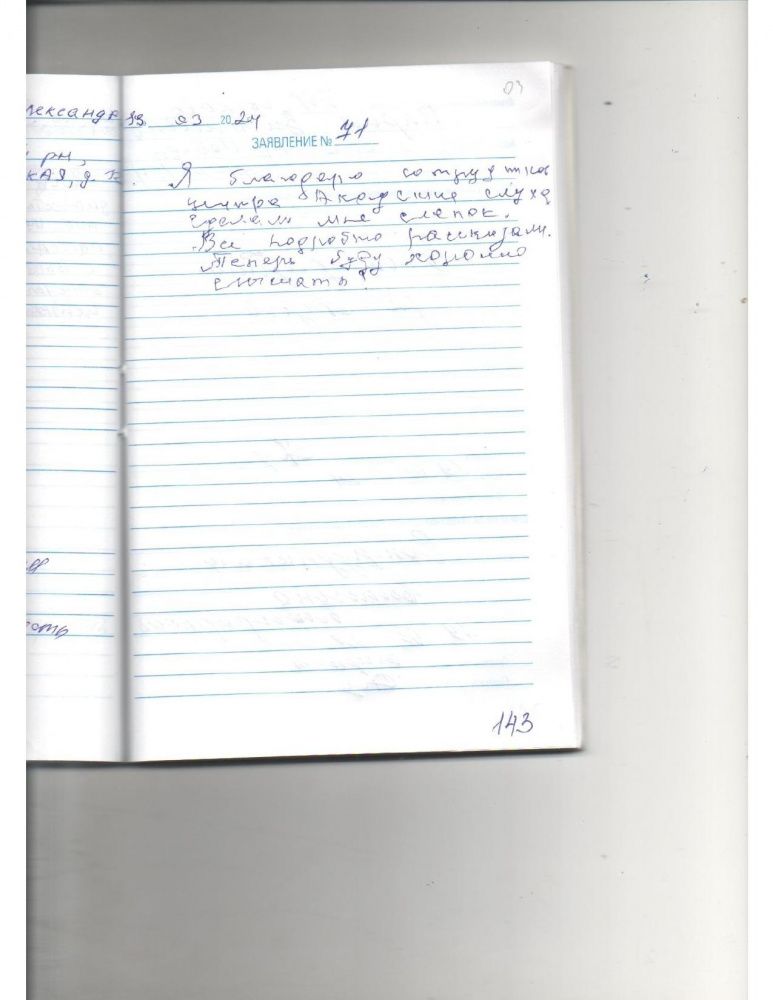 04
13. 03 2024
ЗАЯВЛЕНИЕ № 71
Я благодарю сотрудников
центра Академия слуха
сделали мне слепок.
Все подробно рассказали.
Теперь буду хорошо
слышать!
рн,
КАЯ, д. 12
143